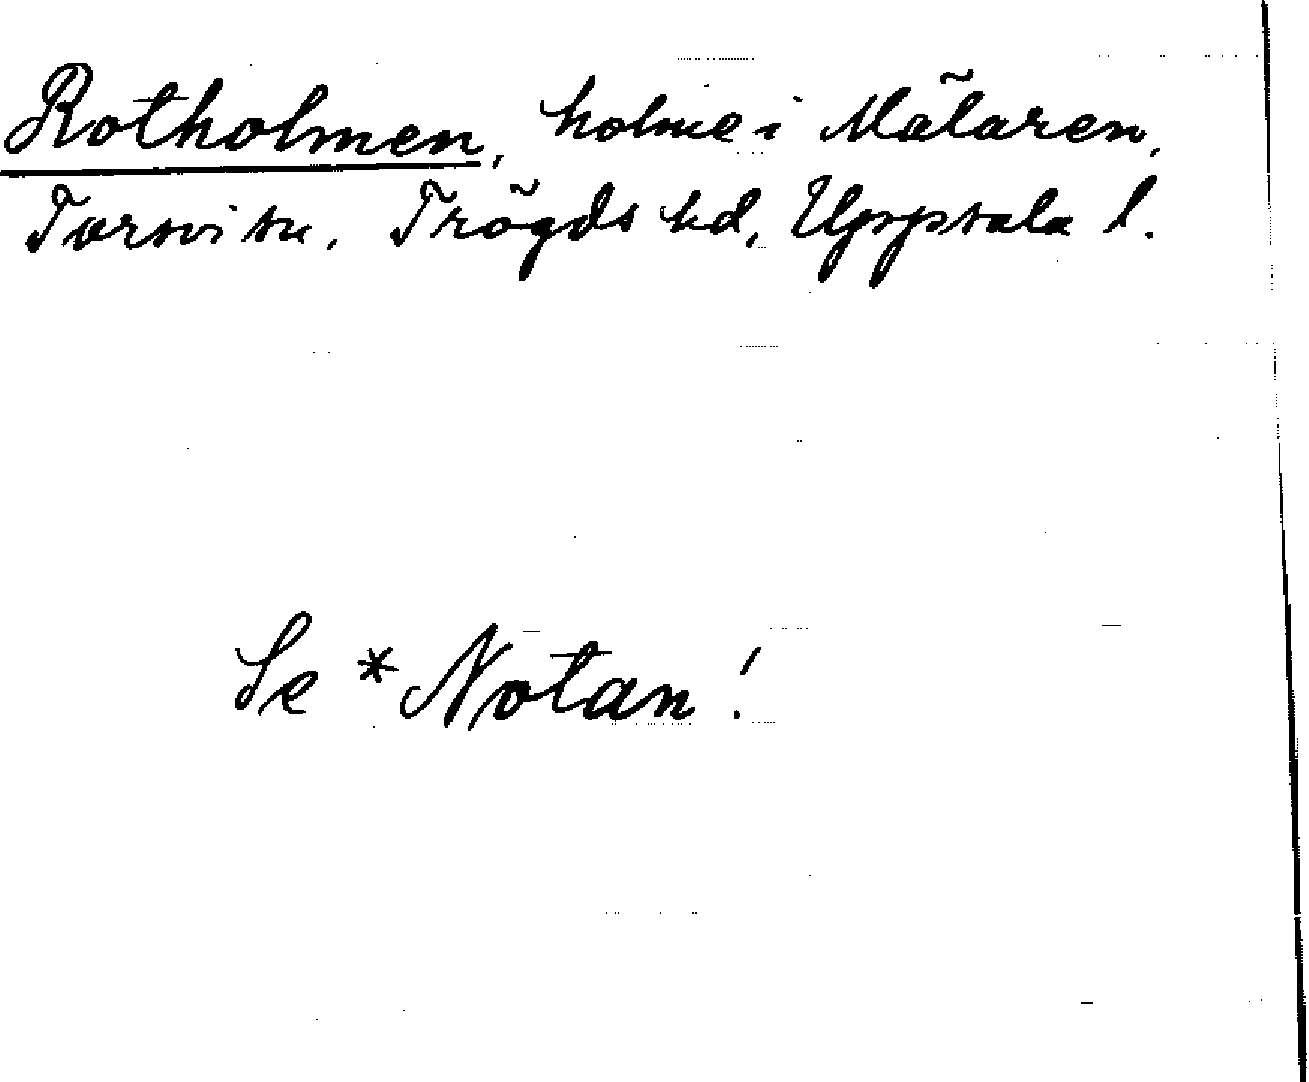 Rotholmen, holme i Mälaren,
Torsvi sn, Trögds hd, Uppsala l.
Se *Notan!